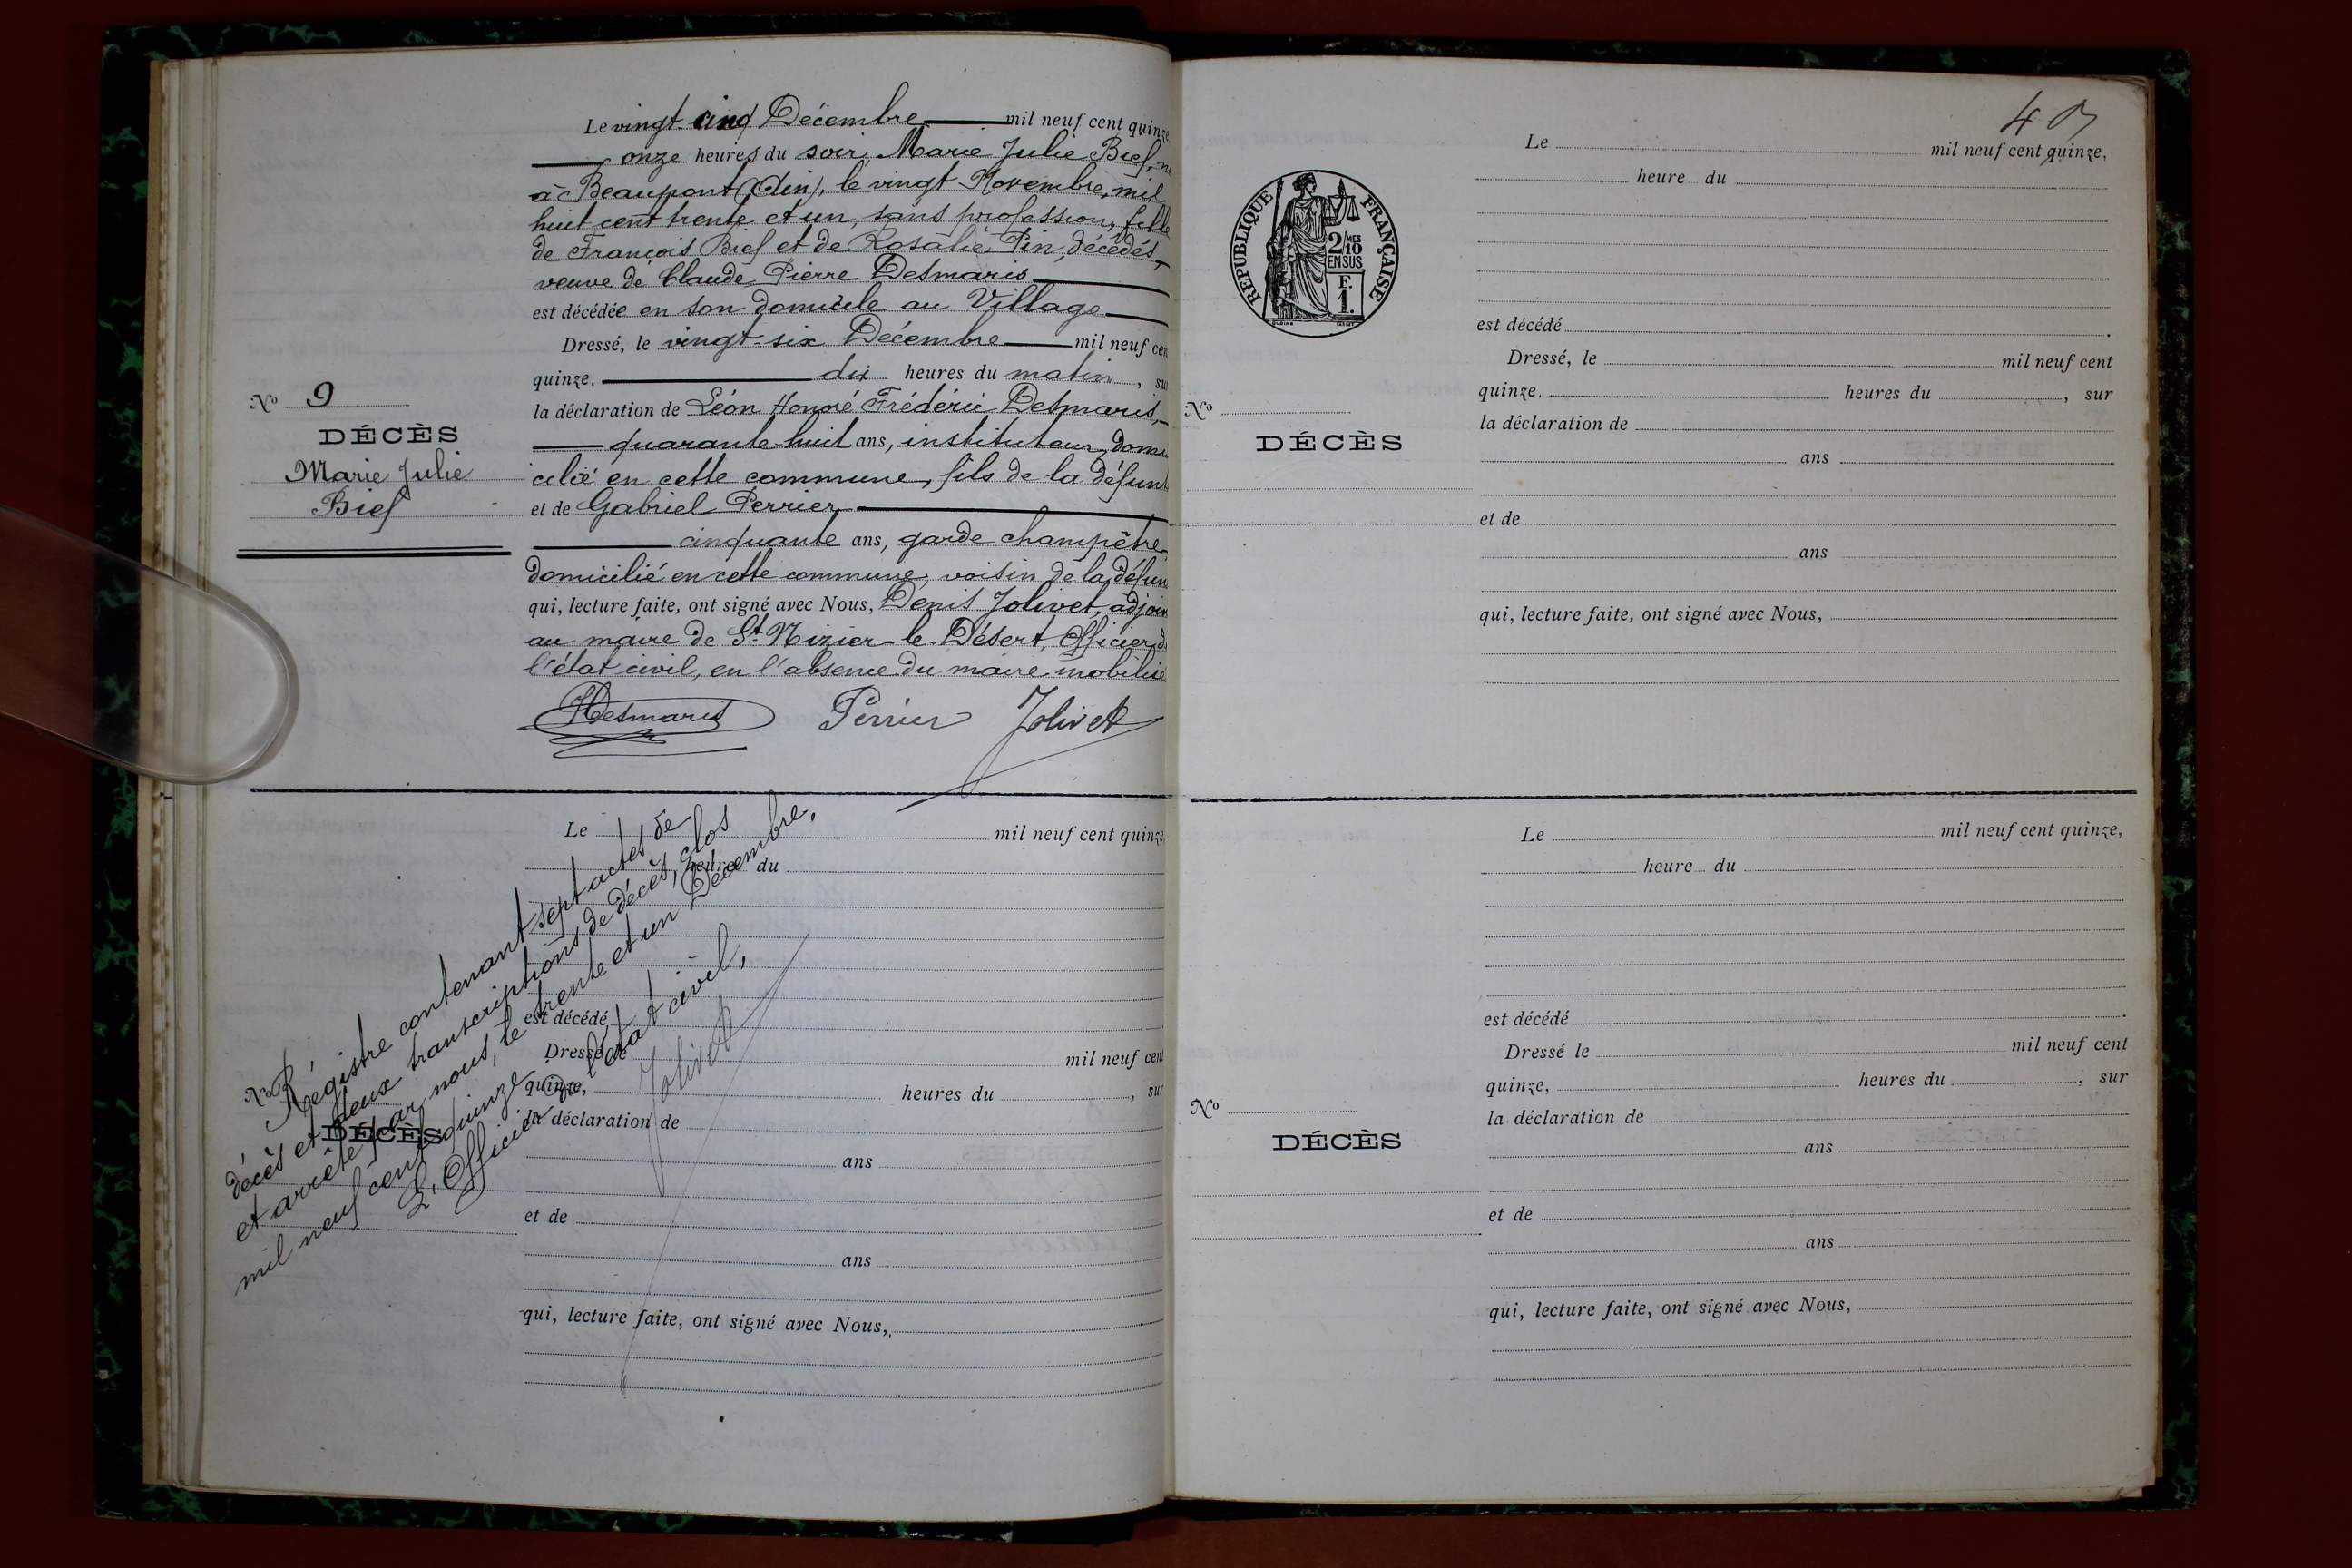 Le vingt-cinq Décembre mil neuf cent quinze
onze heures du soir, Marie Julie Bief, n
à Beaupont (Ain), le vingt Novembre, mil
huit cent trente et un, sans profession, fille
de François Bief et de Rosalie Pin, décédés,
veuve de Claude Pierre Desmaris
est décédée en son domicile au Village
Dressé, le vingt-six Décembre mil neuf cen
quinze. dix heures du matin, su
la déclaration de Léon Honoré Frédéric Desmaris,
quarante-huit ans, instituteur, domi
cilié en cette commune, fils de la défunt
et de Gabriel Perrier
cinquante ans, garde champêtre,
domicilié en cette commune, voisin de la défun
qui, lecture faite, ont signé avec Nous, Denis Jolivet, adjoin
au maire de St Nizier-le-Désert, Officier d
l'état civil, en l'absence du maire mobilisé
Desmaris Perrier Jolivet
No 9
DÉCÈS
Marie Julie
Bief
Le mil neuf cent quinze
heure du
est décédé
Dressé le mil neuf cent
quinze, heures du , sur
la déclaration de
ans
et de
ans
qui, lecture faite, ont signé avec Nous,
No
DÉCÈS
Régistre contenant sept actes de
décès et deux transcriptions de décès, clos
et arrêté par nous, le trente et un Décembre,
mil neuf cent quinze.
L'Officier de l'état civil,
Jolivet
Le mil neuf cent quinze,
heure du
est décédé .
Dressé, le mil neuf cent
quinze. heures du , sur
la déclaration de
ans
et de
ans
qui, lecture faite, ont signé avec Nous,
REPUBLIQUE FRANÇAISE
2/10MES
EN SUS
F.
1.
No
DÉCÈS
Le mil neuf cent quinze,
heure du
est décédé .
Dressé le mil neuf cent
quinze, heures du , sur
la déclaration de
ans
et de
ans
qui, lecture faite, ont signé avec Nous,
No
DÉCÈS